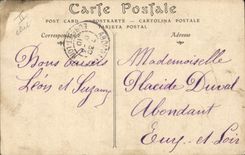 Carte Postale
POST CARD — POSTKARTE — CARTOLINA POSTALE
TARJETA POSTAL
Correspondance
Adresse
Bons baisers
Léon et Suzanne
Mademoiselle
Placide Duval
Abondant
Eure et Loir